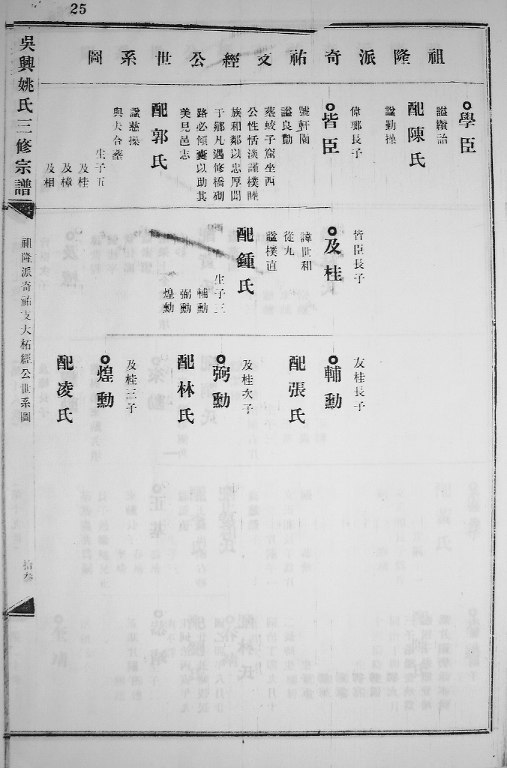 25
祖隆派奇祐支經公世系圖
學臣
諡續諭
配陳氏
諡勤操
偉鄴長子
皆臣
號軒陶
諡良勤
葬蛟子窩坐西
公性恬淡謹樸睦
族和鄰以忠厚聞
于鄉凡遇修橋砌
路必傾囊以助其
美見邑志
配郭氏
諡慈操
與夫合葬
生子五
及桂
及樟
及相
皆臣長子
及桂
諱世和
從九
諡樸直
配鍾氏
生子三
輔勳
弼勳
煌勳
友桂長子
輔勳
配張氏
及桂次子
弼勳
配林氏
及桂三子
煌勳
配凌氏
吳興姚氏三修宗譜
祖隆派奇祐支大柘經公世系圖
拾叁